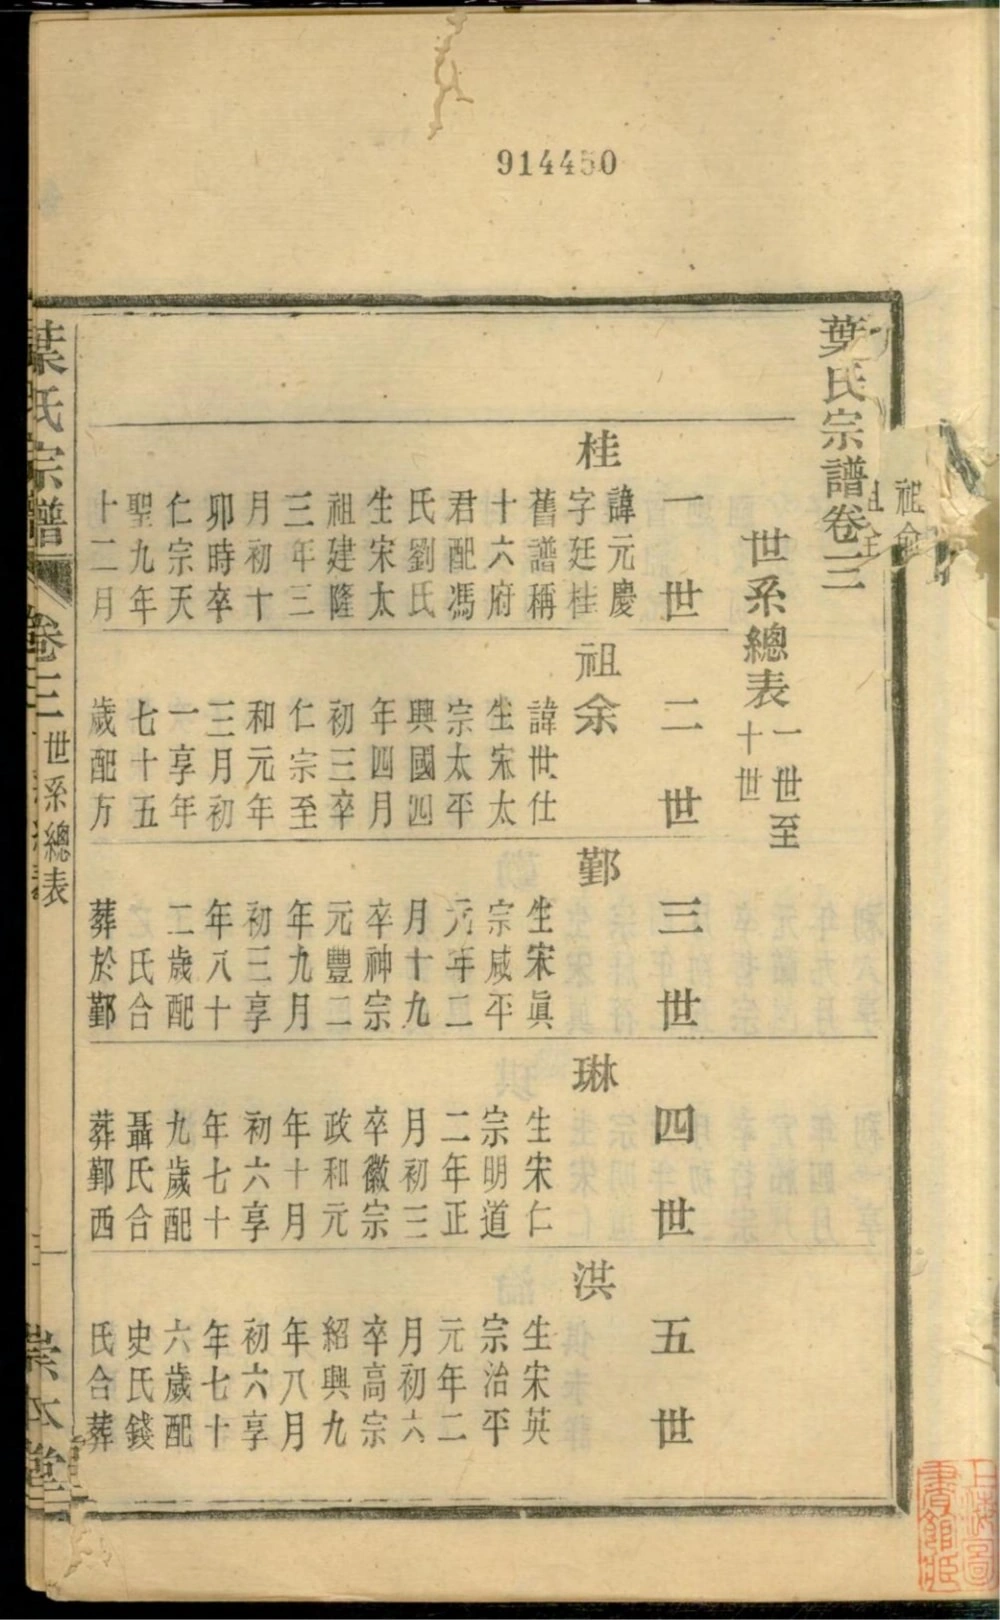 914450
葉氏宗譜卷三
祖余
世系總表
一世至
十世
一世
桂
諱元慶
字廷桂
舊譜稱
十六府
君配馮
氏劉氏
生宋太
祖建隆
三年三
月初十
卯時卒
仁宗天
聖九年
十二月
二世
祖余
諱世仕
生宋太
宗太平
興國四
年四月
初三卒
仁宗至
和元年
三月初
一享年
七十五
歲配方
三世
鄞
生宋眞
宗咸平
元年二
月十九
卒神宗
元豐二
年九月
初三享
年八十
二歲配
氏合
葬於鄞
四世
琳
生宋仁
宗明道
二年正
月初三
卒徽宗
政和元
年十月
初六享
年七十
九歲配
聶氏合
葬鄞西
五世
洪
生宋英
宗治平
元年二
月初六
卒高宗
紹興九
年八月
初六享
年七十
六歲配
史氏錢
氏合葬
葉氏宗譜
卷三
世系總表
一
崇本堂